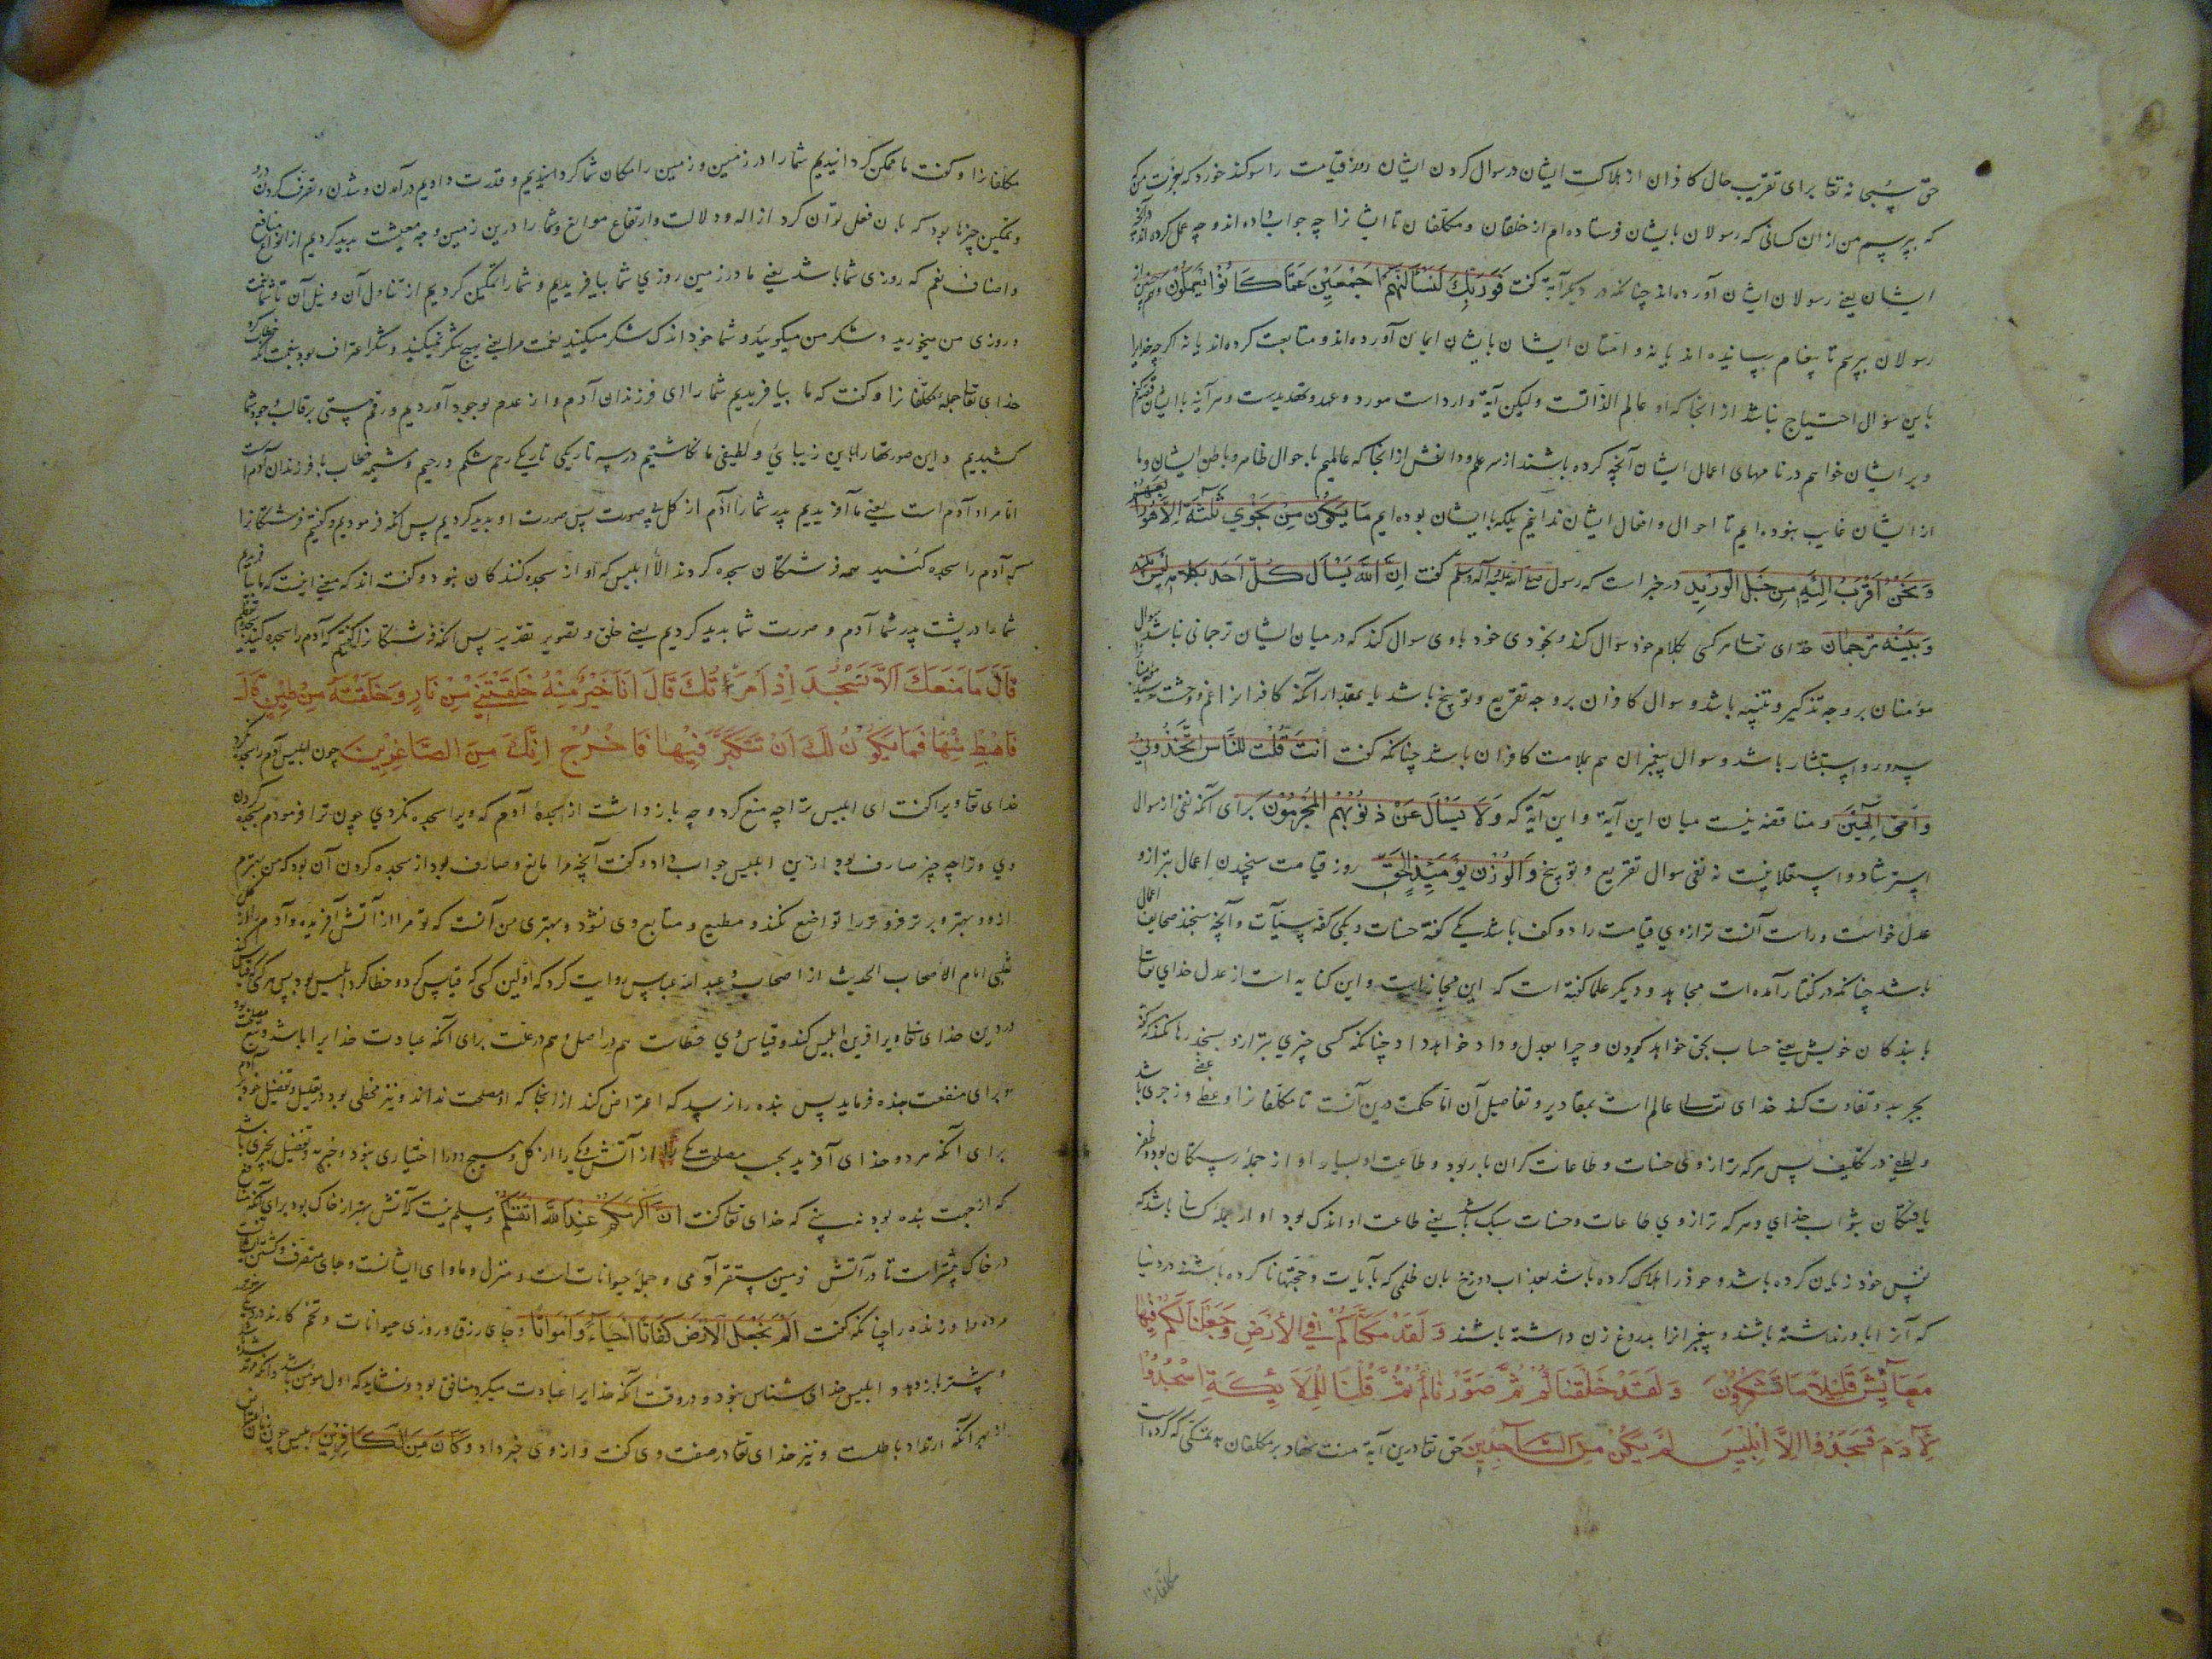 حق سبحانه تعا برای تقریب حال کافران از هلاکت ایشان در سوال کردن ایشان روز قیامت را سوکند خورد که بعزت من
که بپرسم من از آن کسانی که رسولان بایشان فرستاده ام از خلقان و مکلفان تا ایشانرا چه جواب داده اند و چه عمل کرده اند
ایشان یعنی رسولان ایشان آورده اند چنانکه در دیکر آیة کفت فَوَرَبِّكَ لَنَسْأَلَنَّهُمْ اَجْمَعِيْنَ عَمَّا كَانُوْا يَعْمَلُوْنَ
رسولان بپرسم تا پیغام رسانیده اند یا نه و امتان ایشان بایشان ایمان آورده اند و متابعت کرده اند یا نه اکرچه خدایرا
باین سؤال احتیاج نباشد از انجا که او عالم الذاتست ولیکن آیة وارد است مورد وعید و تهدیدست و هر آینه با ایشان
وبر ایشان خواهم در نامهای اعمال ایشان آنچه کرده باشند از سر علم و دانش از انجا که عالمیم باحوال ظاهر و باطن ایشان وما
از ایشان غایب نبوده ایم تا احوال و افعال ایشان ندانیم بلکه با ایشان بوده ایم مَا يَكُوْنُ مِنْ نَجْوٰي ثَلٰثَةٍ اِلَّا هُوَ رَابِعُهُمْ
وَنَحْنُ اَقْرَبُ اِلَيْهِ مِنْ حَبْلِ الْوَرِيْدِ در خبر است که رسول صلی الله علیه وآله وسلم کفت اِنَّ اللّٰهَ يَسْأَلُ كُلَّ اَحَدٍ بِكَلَامِهِ لَيْسَ بَيْنَهُ
وَبَيْنَهُ تَرْجُمَان خدای تعا هر کسی بکلام خود سوال کند و بخودی خود با وی سوال کند که در میان ایشان ترجمانی نباشد سوال
مؤمنان بر وجه تذکیر و تنبیه باشد و سوال کافران بر وجه تقریع و توبیخ باشد یا بمقدار انکه کافرانرا غم و وحشت رسد مومنانرا
سرور و استبشار باشد و سوال پیغمبران هم بملامت کافران باشد چنانکه کفت أَنْتَ قُلْتَ لِلنَّاسِ اتَّخِذُوْنِيْ
وَاُمِّيَ اِلٰهَيْنِ و مناقضه نیست میان این آیة و این آیة که وَلَا يُسْأَلُ عَنْ ذُنُوْبِهِمُ الْمُجْرِمُوْنَ برای آنکه نفی از سوال
استرشاد و استعلامست نه نفی سوال تقریع و توبیخ وَالْوَزْنُ يَوْمَئِذٍ الْحَقُّ روز قیامت سنجیدن اعمال بترازو
عدل خواست و راست آنست ترازوی قیامت را دو کفه باشد یکی کفه حسنات و یکی کفه سیئات و آنچه سنجند صحایف اعمال
باشد چنانکه در کفتار آمده است مجاهد و دیکر علما کفته است که این مجازاست و این کنایه است از عدل خدای تعا
با بندکان خویش یعنی حساب بحق خواهد کردن و جزا بعدل و داد خواهد داد چنانکه کسی چیزی بترازو بسنجد
بچربد و تفاوت کند خدای تعالی عالم است بمقادیر و تفاصیل آن اما حکمت درین آنست تا مکلفانرا وعظی و زجری باشد
و لطفی در تکلیف پس هر که ترازوی حسنات و طاعات کران بار بود و طاعت او بسیار او از جمله رستکان بود
یافتکان بثواب خدای و هر که ترازوی طاعات و حسنات سبک باشد یعنی طاعت او اندک بود او از جمله کسانی باشد که
نفس خود زیان کرده باشد و خودرا هلاک کرده باشد بعذاب دوزخ بان ظلمی که بآیات و حجتهای ما کرده باشند در دنیا
که آنرا باور نداشته باشند و پیغمبرانرا بدروغ زن داشته باشند وَلَقَدْ مَكَّنَّاكُمْ فِي الْأَرْضِ وَجَعَلْنَا لَكُمْ فِيْهَا
مَعَايِشَ قَلِيْلًا مَا تَشْكُرُوْنَ وَلَقَدْ خَلَقْنَاكُمْ ثُمَّ صَوَّرْنَاكُمْ ثُمَّ قُلْنَا لِلْمَلَائِكَةِ اسْجُدُوْا
لِآدَمَ فَسَجَدُوْا اِلَّا اِبْلِيْسَ لَمْ يَكُنْ مِنَ السَّاجِدِيْنَ حق تعا درین آیة منت نهاد بر مکلفان به تمکینی که کرده است
مکلفانرا
مکلفانرا و کفت ما ممکن کردانیدیم شما را در زمین و زمین را مکان شما کردانیدیم و قدرت دادیم در آمدن و شدن و تصرف کردن
و تمکین چیزها بود که بان فعل توان کرد از اله و دلالت و ارتفاع موانع و شما را درین زمین وجه معیشت پدید کردیم از انواع منافع
و اصناف نعم که روزی شما باشد یعنی ما در زمین روزی شما بیافریدیم و شما را تمکین کردیم از تناول آن و نیل آن تا شما نعمت
و روزی من میخورید و شکر من میکویید و شما خود اندک شکر میکنید نعمت مرا یعنی هیچ شکر نمیکنید و شکر اعتراف بود بنعمت
خدای تعا جمله مکلفانرا و کفت که ما بیافریدیم شما را ای فرزندان آدم و از عدم بوجود آوردیم و رقم هستی بر قالب وجود شما
کشیدیم و این صورتها را باین زیبایی و لطیفی ما نکاشتیم در سه تاریکی تاریکی رحم شکم و رحیم و مشیمه خطاب با فرزندان آدم است
اما مراد آدم است یعنی ما آفریدیم پدر شما را آدم از کل بی صورت پس صورت او پدید کردیم پس انکه فرمودیم و کفتیم فرشتکانرا
که آدم را سجده کنید همه فرشتکان سجده کردند الا ابلیس که او از سجده کنندکان نبود و کفته اند که معنی اینست که ما بیافریدیم
شما را در پشت پدر شما آدم و صورت شما پدید کردیم یعنی خلق و تصویر تقدیر پس انکه فرشتکانرا کفتیم که آدم را سجده کنید
قَالَ مَا مَنَعَكَ اَلَّا تَسْجُدَ اِذْ اَمَرْتُكَ قَالَ اَنَا خَيْرٌ مِنْهُ خَلَقْتَنِيْ مِنْ نَارٍ وَخَلَقْتَهُ مِنْ طِيْنٍ قَالَ
فَاهْبِطْ مِنْهَا فَمَا يَكُوْنُ لَكَ اَنْ تَتَكَبَّرَ فِيْهَا فَاخْرُجْ اِنَّكَ مِنَ الصَّاغِرِيْنَ چون ابلیس آدم را سجده نکرد
خدای تعا ویرا کفت ای ابلیس ترا چه منع کرد و چه باز داشت از سجدۀ آدم که ویرا سجده نکردی چون ترا فرمودم بسجده کردن
وی و ترا چه چیز صارف بود ازین ابلیس جواب داد و کفت آنچه مرا مانع و صارف بود از سجده کردن آن بود که من بهترم
ازو و بهتر و برتر فروتر را تواضع نکند و مطیع و متابع وی نشود و بهتری من آنست که تو مرا از آتش آفریده و آدم را از کل
ثعلبی امام الاصحاب الحدیث از اصحاب عبد الله عباس روایت کرد که اولین کسی که قیاس کرد و خطا کرد ابلیس بود پس هر که قیاس کند
در دین خدای تعا ویرا قرین ابلیس کند و قیاس وی خطاست هم در اصل و هم در علت برای انکه عبادت خدایرا باشد
و برای منفعت بنده فرماید پس بنده را نرسد که اعتراض کند از انجا که او مصلحت نداند و نیز مخطی بود در تعلیل و تفضیل خود بر آدم
برای آنکه هر دو خدای آفرید بحسب مصلحت یکی را از آتش و یکی را از کل و هیچ دو را اختیاری نبود
که از جهت بنده بود نبینی که خدای تعا کفت اِنَّ اَكْرَمَكُمْ عِنْدَ اللّٰهِ اَتْقٰكُمْ و مسلم نیست که آتش بهتر از خاک بود برای انکه
در خاک بیشتر است تا در آتش زمین مستقر آدمی و جملۀ حیوانات است و منزل و ماوای ایشانست و جای متصرف
مرده را و زنده را چنانکه کفت اَلَمْ نَجْعَلِ الْاَرْضَ كِفَاتًا اَحْيَاءً وَاَمْوَاتًا و جای رزق و روزی حیوانات و تخم کارند
و بیشتر باز دهد و ابلیس خدای شناس نبود و در وقت آنکه خدایرا عبادت میکرد منافق بود و نشاید که اول مومن باشد
از بهر آنکه ارتداد باطلست و نیز خدای تعا در صفت وی کفت و از وی خبر داد وَكَانَ مِنَ الْكَافِرِيْنَ ابلیس چون